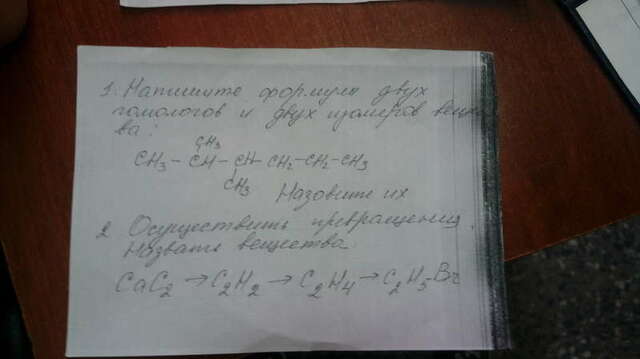 1. Напишите формулы двух
гомологов и двух изомеров вещес
ва:
CH3
CH3 - CH - CH - CH2 - CH2 - CH3
CH3
Назовите их
2 Осуществить превращения.
Назвать вещества:
CaC2 → C2H2 → C2H4 → C2H5Br